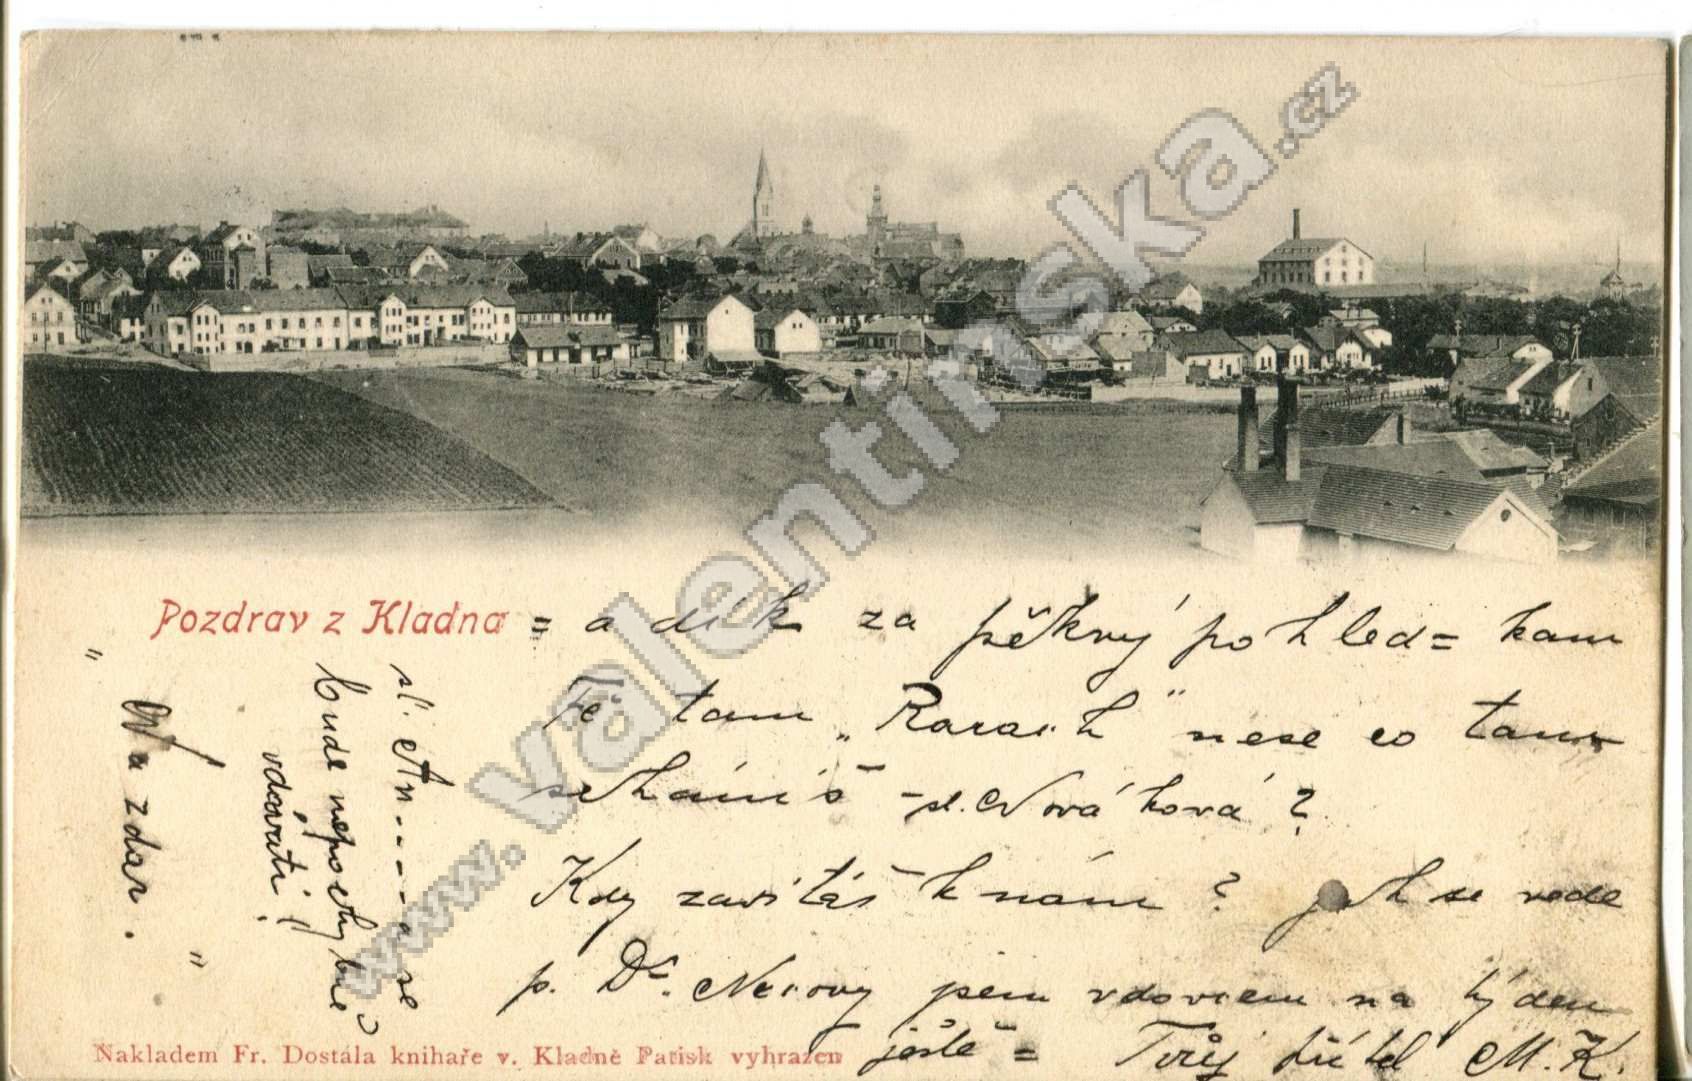 www.valentinska.cz
Pozdrav z Kladna = a dík za pěkný pohled = kam
Tě tam „Rarach" nese co tam
scháníš – sl. Nováková?
Kdy zavítáš k nám? jak se vede
p. Dr. jsem vdovcem na týden
ještě = Tvůj přítel M. K.
sl. An - - - a se
bude nepochybně
vdávati!
"Na zdar."
Nakladem Fr. Dostála knihaře v. Kladně Patisk vyhrazen